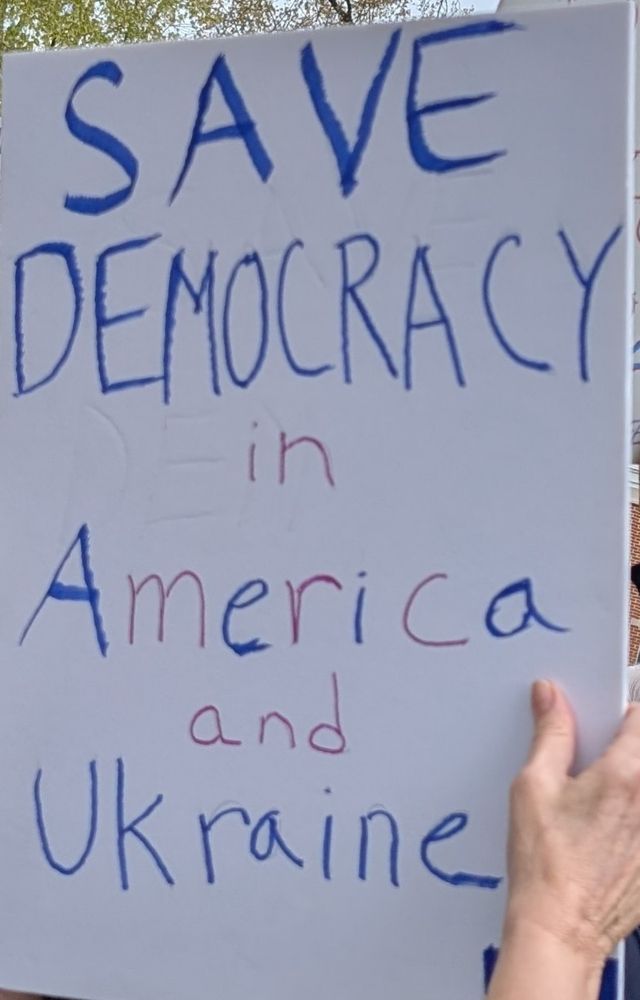 SAVE
DEMOCRACY
in
America
and
Ukraine